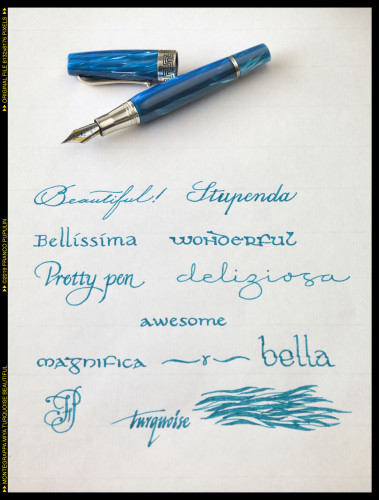 ▸▸ ORIGINAL FILE 6132x8176 PIXELS ▸▸
Beautiful! Stupenda
Bellissima wonderful
Pretty pen deliziosa
awesome
magnifica r bella
FP turquoise
▸▸ ©2019 FRANCO PUPULIN
▸▸ MONTEGRAPPA MIYA TURQUOISE BEAUTIFUL